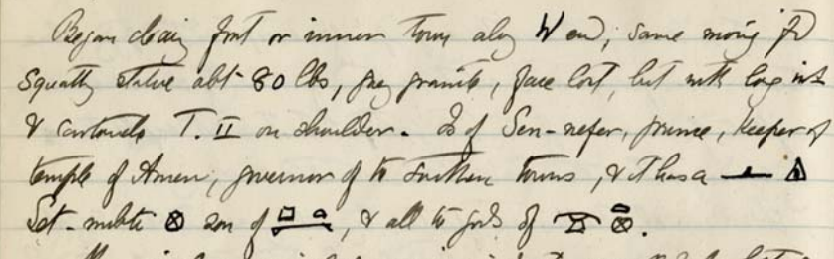 Began clearing front or inner town along W end, same morning fd
squatty statue abt 80 lbs, grey granite, face lost, but with long ins
& cartouche T. II on shoulder. Is of Sen-nefer, prince, keeper of
temple of Amen, governor of to southern towns, & it has a
Set-nubte son of , & all to gods of .